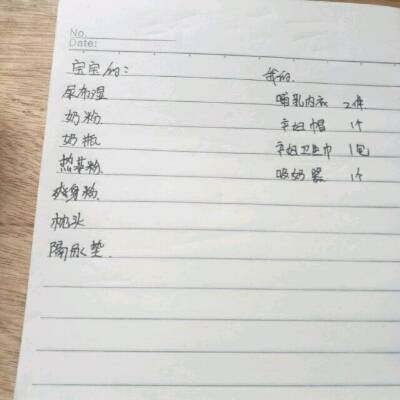 No.
Date:
宝宝的:
尿布湿
奶粉
奶瓶
热痱粉
爽身粉
枕头
隔尿垫
我的.
哺乳内衣 2件
孕妇帽 1个
孕妇卫生巾 1包
吸奶器 1个